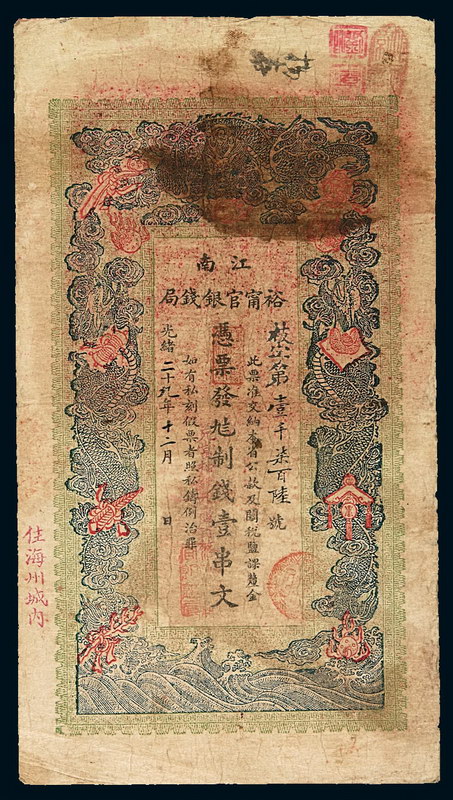 江南
裕甯官銀錢局
第壹千柒百陸號
此票准交納本省公款及關稅鹽課釐金
憑票發兌制錢壹串文
如有私刻假票者照私鑄例治罪
光緒二十九年十二月 日
住海州城內